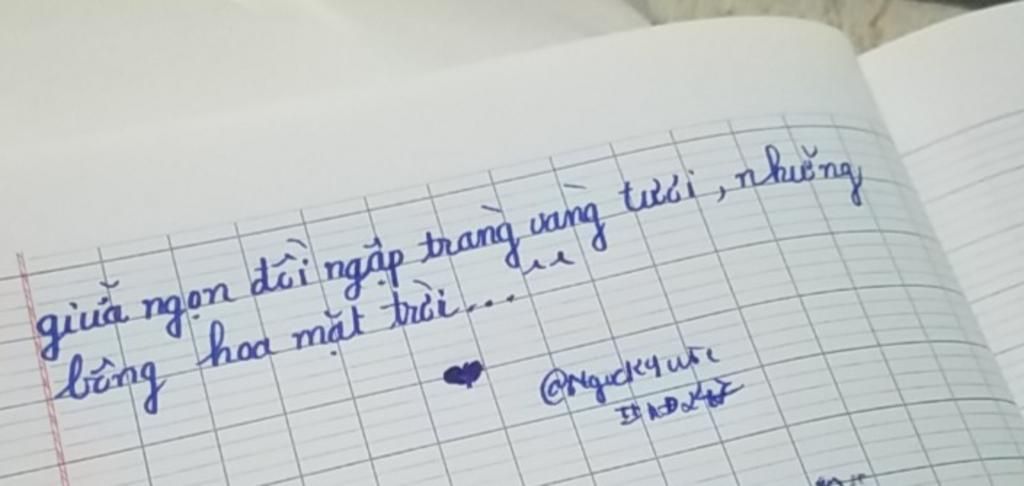 giữa ngọn đồi ngập tràng vàng tươi, những
bông hoa mặt trời...